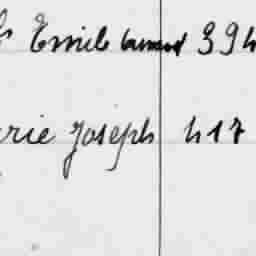 Emile 394
rie Joseph 417